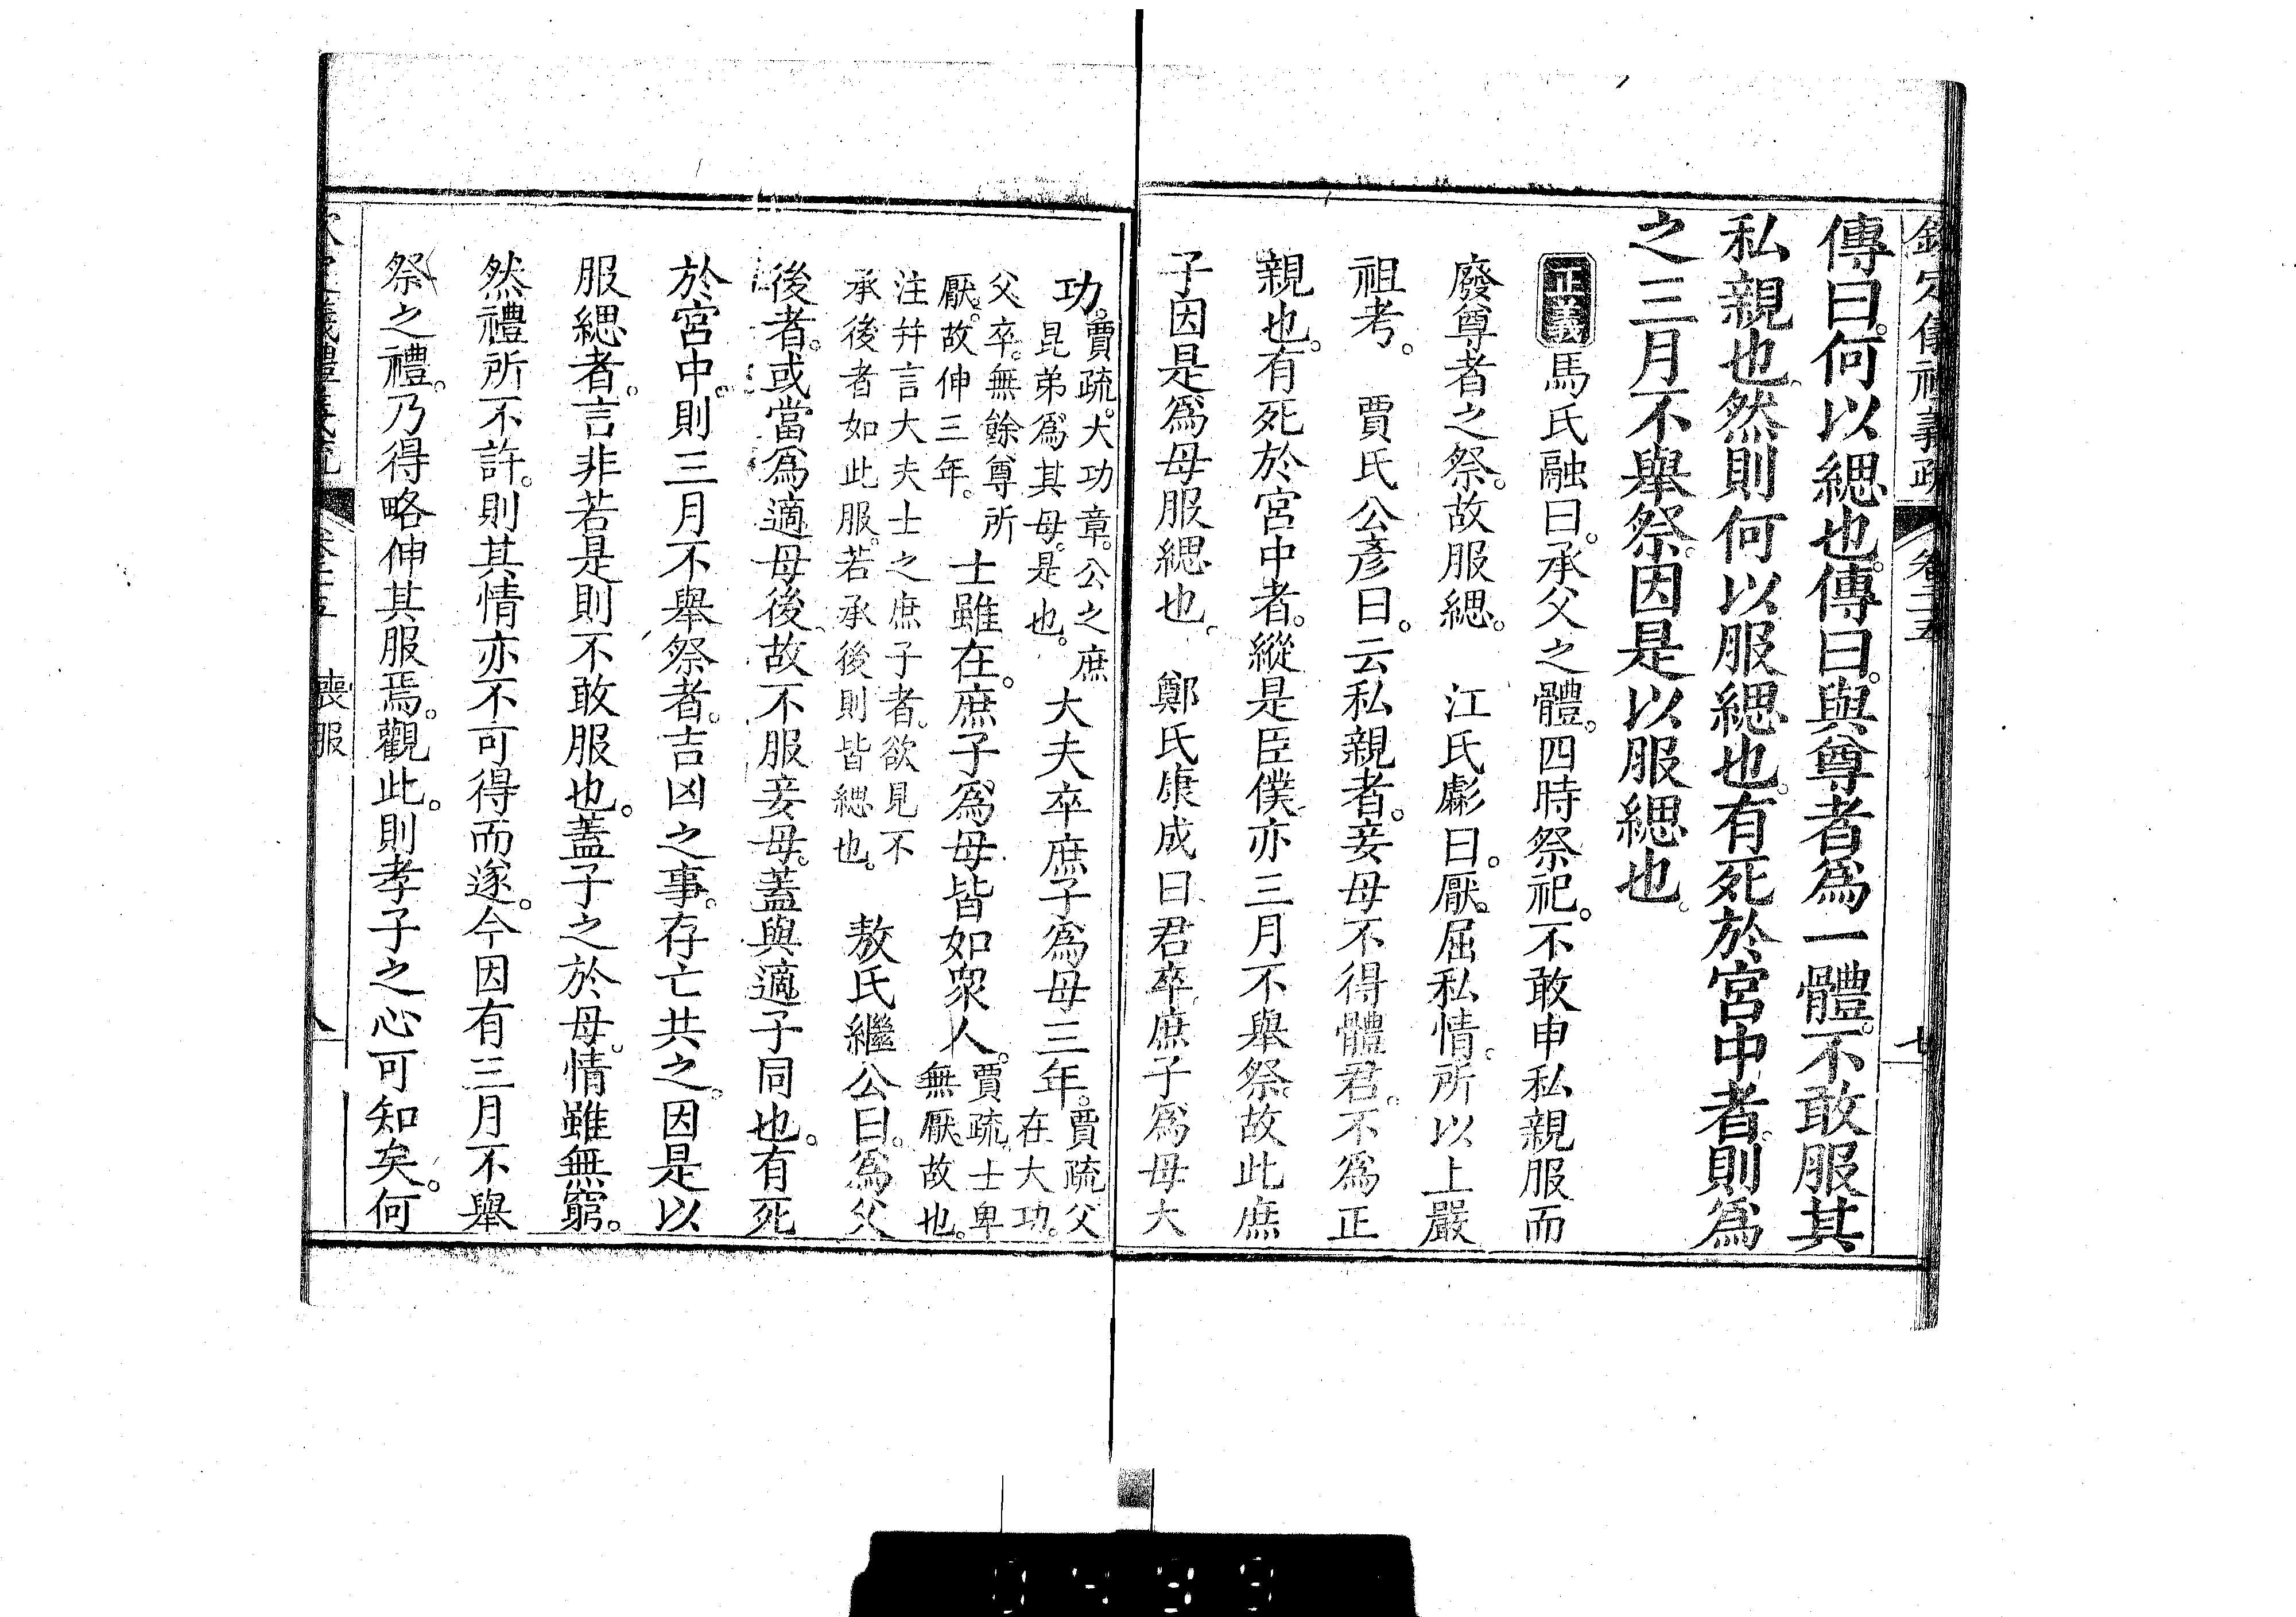 欽定儀禮義疏 卷二十五 七
傳曰。何以緦也。傳曰。與尊者爲一體。不敢服其
私親也。然則何以服緦也。有死於宮中者。則爲
之三月不舉祭。因是以服緦也。
正義馬氏融曰。承父之體。四時祭祀。不敢申私親服而
廢尊者之祭。故服緦。 江氏彪曰。厭屈私情。所以上嚴
祖考。 賈氏公彥曰。云私親者。妾母不得體君。不爲正
親也。有死於宮中者。縱是臣僕。亦三月不舉祭。故此庶
子因是爲母服緦也。 鄭氏康成曰君卒庶子爲母大
功。賈疏。大功章。公之庶
昆弟爲其母。是也。大夫卒庶子爲母三年。賈疏父
在大功。
父卒。無餘尊所
厭。故伸三年。士雖在。庶子爲母皆如衆人。賈疏。士卑
無厭故也。
注幷言大夫士之庶子者。欲見不
承後者如此服。若承後則皆緦也。 敖氏繼公曰。爲父
後者。或當爲適母後。故不服妾母。蓋與適子同也。有死
於宮中。則三月不舉祭者。吉凶之事。存亡共之。因是以
服緦者。言非若是則不敢服也。蓋子之於母。情雖無窮。
然禮所不許。則其情亦不可得而遂。今因有三月不舉
祭之禮。乃得略伸其服焉。觀此。則孝子之心可知矣。何
喪服
八